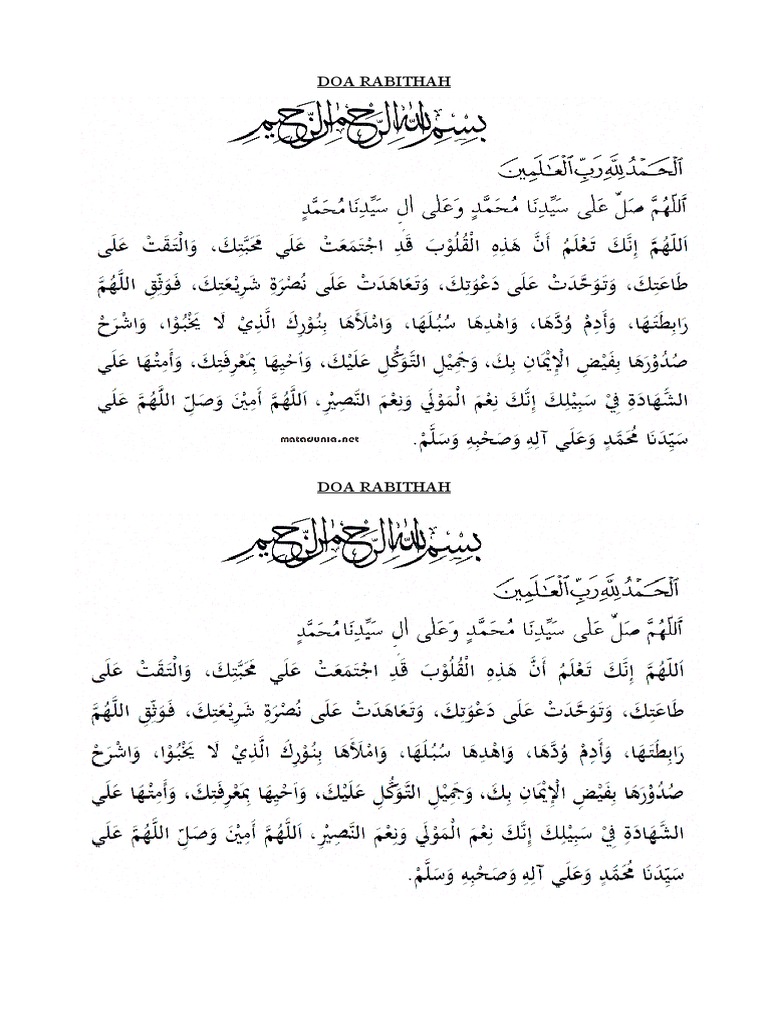 DOA RABITHAH
بِسْمِ اللهِ الرَّحْمٰنِ الرَّحِيْمِ
اَلْحَمْدُ لِلَّهِ رَبِّ الْعَالَمِينَ
اَللّٰهُمَّ صَلِّ عَلٰى سَيِّدِنَا مُحَمَّدٍ وَعَلٰى اٰلِ سَيِّدِنَا مُحَمَّدٍ
اَللّٰهُمَّ إِنَّكَ تَعْلَمُ أَنَّ هَذِهِ الْقُلُوْبَ قَدِ اجْتَمَعَتْ عَلَي مَحَبَّتِكَ، وَالْتَقَتْ عَلَى
طَاعَتِكَ، وَتَوَحَّدَتْ عَلَى دَعْوَتِكَ، وَتَعَاهَدَتْ عَلَى نُصْرَةِ شَرِيْعَتِكَ، فَوَثِّقِ اللَّهُمَّ
رَابِطَتَهَا، وَأَدِمْ وُدَّهَا، وَاهْدِهَا سُبُلَهَا، وَامْلَأْهَا بِنُوْرِكَ الَّذِيْ لَا يَخْبُوْا، وَاشْرَحْ
صُدُوْرَهَا بِفَيْضِ الْإِيْمَانِ بِكَ، وَجَمِيْلِ التَّوَكُّلِ عَلَيْكَ، وَاَحْيِهَا بِمَعْرِفَتِكَ، وَأَمِتْهَا عَلَي
الشَّهَادَةِ فِيْ سَبِيْلِكَ إِنَّكَ نِعْمَ الْمَوْلَي وَنِعْمَ النَّصِيْرِ، اَللَّهُمَّ أَمِيْنَ وَصَلِّ اللَّهُمَّ عَلَي
سَيِّدَنَا مُحَمَّدٍ وَعَلَي آلِهِ وَصَحْبِهِ وَسَلَّمْ.
matadunia.net
DOA RABITHAH
بِسْمِ اللهِ الرَّحْمٰنِ الرَّحِيْمِ
اَلْحَمْدُ لِلَّهِ رَبِّ الْعَالَمِينَ
اَللّٰهُمَّ صَلِّ عَلٰى سَيِّدِنَا مُحَمَّدٍ وَعَلٰى اٰلِ سَيِّدِنَا مُحَمَّدٍ
اَللّٰهُمَّ إِنَّكَ تَعْلَمُ أَنَّ هَذِهِ الْقُلُوْبَ قَدِ اجْتَمَعَتْ عَلَي مَحَبَّتِكَ، وَالْتَقَتْ عَلَى
طَاعَتِكَ، وَتَوَحَّدَتْ عَلَى دَعْوَتِكَ، وَتَعَاهَدَتْ عَلَى نُصْرَةِ شَرِيْعَتِكَ، فَوَثِّقِ اللَّهُمَّ
رَابِطَتَهَا، وَأَدِمْ وُدَّهَا، وَاهْدِهَا سُبُلَهَا، وَامْلَأْهَا بِنُوْرِكَ الَّذِيْ لَا يَخْبُوْا، وَاشْرَحْ
صُدُوْرَهَا بِفَيْضِ الْإِيْمَانِ بِكَ، وَجَمِيْلِ التَّوَكُّلِ عَلَيْكَ، وَاَحْيِهَا بِمَعْرِفَتِكَ، وَأَمِتْهَا عَلَي
الشَّهَادَةِ فِيْ سَبِيْلِكَ إِنَّكَ نِعْمَ الْمَوْلَي وَنِعْمَ النَّصِيْرِ، اَللَّهُمَّ أَمِيْنَ وَصَلِّ اللَّهُمَّ عَلَي
سَيِّدَنَا مُحَمَّدٍ وَعَلَي آلِهِ وَصَحْبِهِ وَسَلَّمْ.